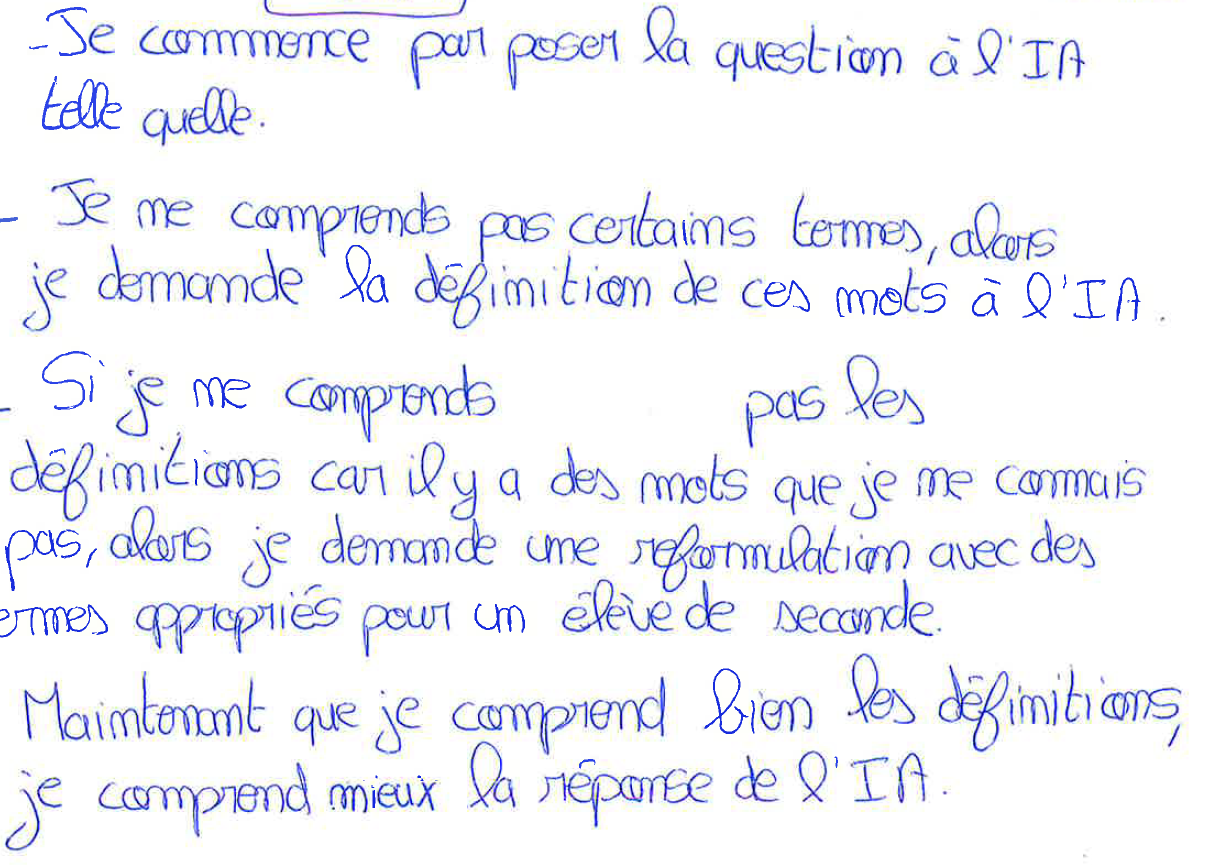 - Je commence par poser la question à l'IA
telle quelle.
- Je ne comprends pas certains termes, alors
je demande la définition de ces mots à l'IA.
- Si je ne comprends pas les
définitions car il y a des mots que je ne connais
pas, alors je demande une reformulation avec des
ermes appropriés pour un élève de seconde.
Maintenant que je comprend bien les définitions,
je comprend mieux la réponse de l'IA.